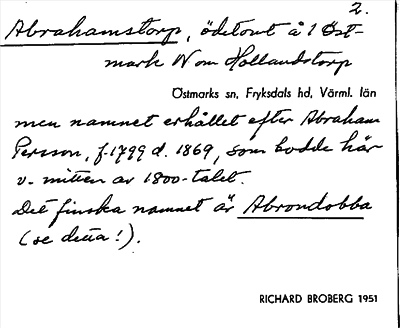 2.
Abrahamstorp, ödetomt å 1 Öst-
mark N om Hollandstorp
Östmarks sn, Fryksdals hd, Värml. län
men namnet erhållet efter Abraham
Persson, f. 1799 d. 1869, som bodde här
v. mitten av 1800-talet.
Det finska namnet är Abrondobba
(se detta!).
RICHARD BROBERG 1951